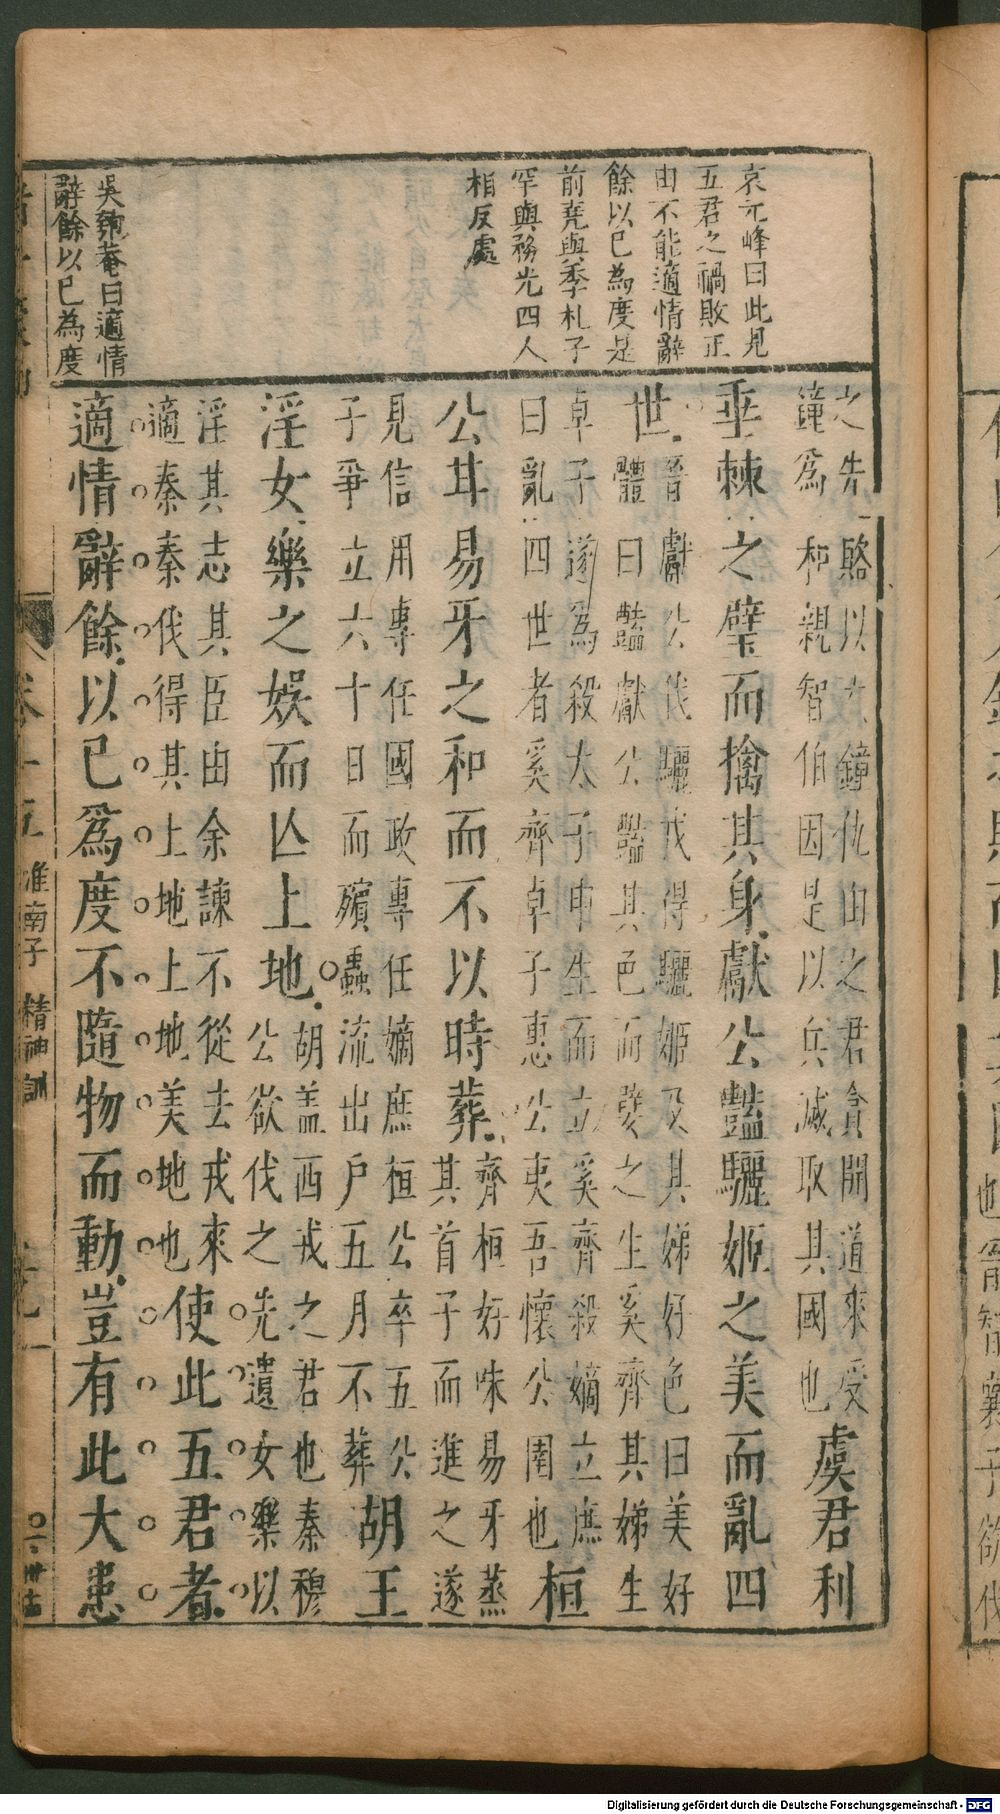 袁元峰曰此見
五君之禍敗正
由不能適情辭
餘以已為度是
前堯與季札子
罕與務光四人
相反處
吳匏菴曰適情
辭餘以已為度
之先賂以大鐘仇由之君貪開道來受
鐘爲和親智伯因是以兵滅取其國也
虞君利
垂棘之璧而擒其身獻公豔驪姬之美而亂四
世
晉獻公伐驪戎得驪姬及其娣好色曰美好
體曰豔獻公豔其色而嬖之生奚齊其娣生
卓子遂爲殺太子申生而立奚齊殺嫡立庶
曰亂四世者奚齊卓子惠公夷吾懷公圉也
桓
公甘易牙之和而不以時葬
齊桓好味易牙蒸
其首子而進之遂
見信用專任國政專任嫡庶桓公卒五公
子爭立六十日而殯蟲流出戶五月不葬
胡王
淫女樂之娛而亾上地
胡盖西戎之君也秦穆
公欲伐之先遺女樂以
淫其志其臣由余諫不從去戎來
適秦秦伐得其上地上地美地也
使此五君者
適情辭餘以已爲度不隨物而動豈有此大患
卷十五
淮南子
精神訓
Digitalisierung gefördert durch die Deutsche Forschungsgemeinschaft - DFG